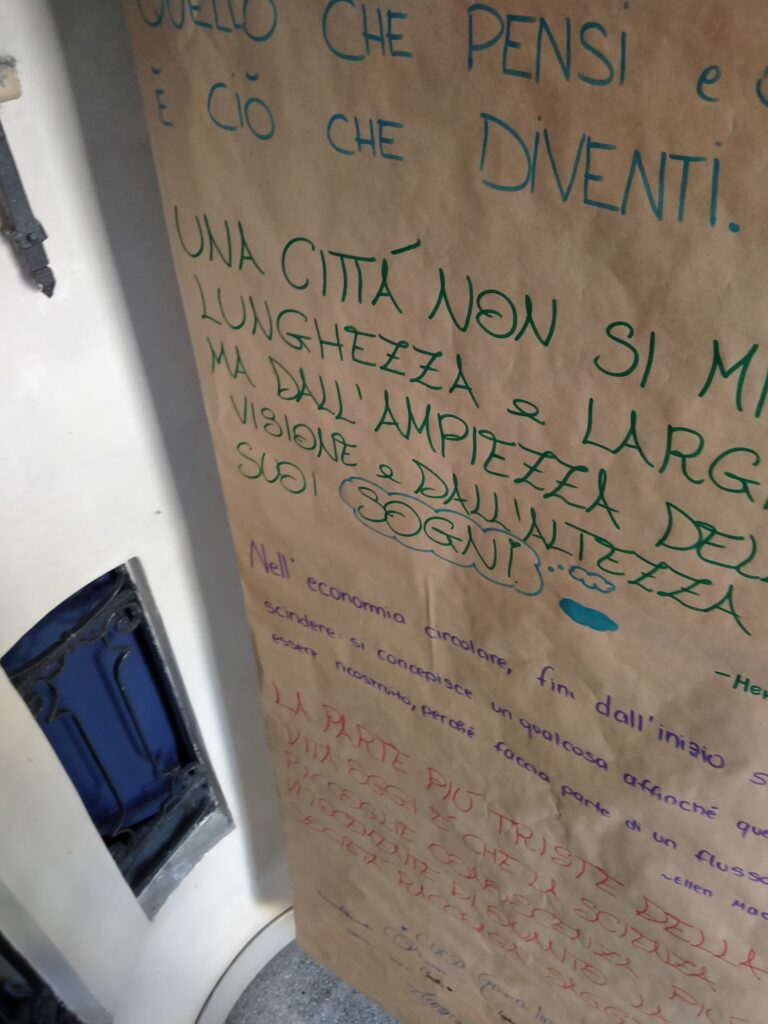 QUELLO CHE PENSi e
È CiÒ CHE DiVENTi.
UNA CITTÁ NON SI
LUNGHEZZA e
MA DALL'AMPIEZZA
VISIONE e DALL'ALTEZZA
SUOI SOGNI
Nell' economia circolare, fin dall'inizio
scindere: si concepisce un qualcosa affinché
essere ricostruito, perché faccia parte di un flusso
~Ellen
LA PARTE PIÚ TRISTE DELLA
VITA OGGI È CHE LA SCIENZA
RACCOGLIE CONOSCENZA PIÙ
VELOCEMENTE DI QUANTO LA
SOCIETÁ RACCOLGA